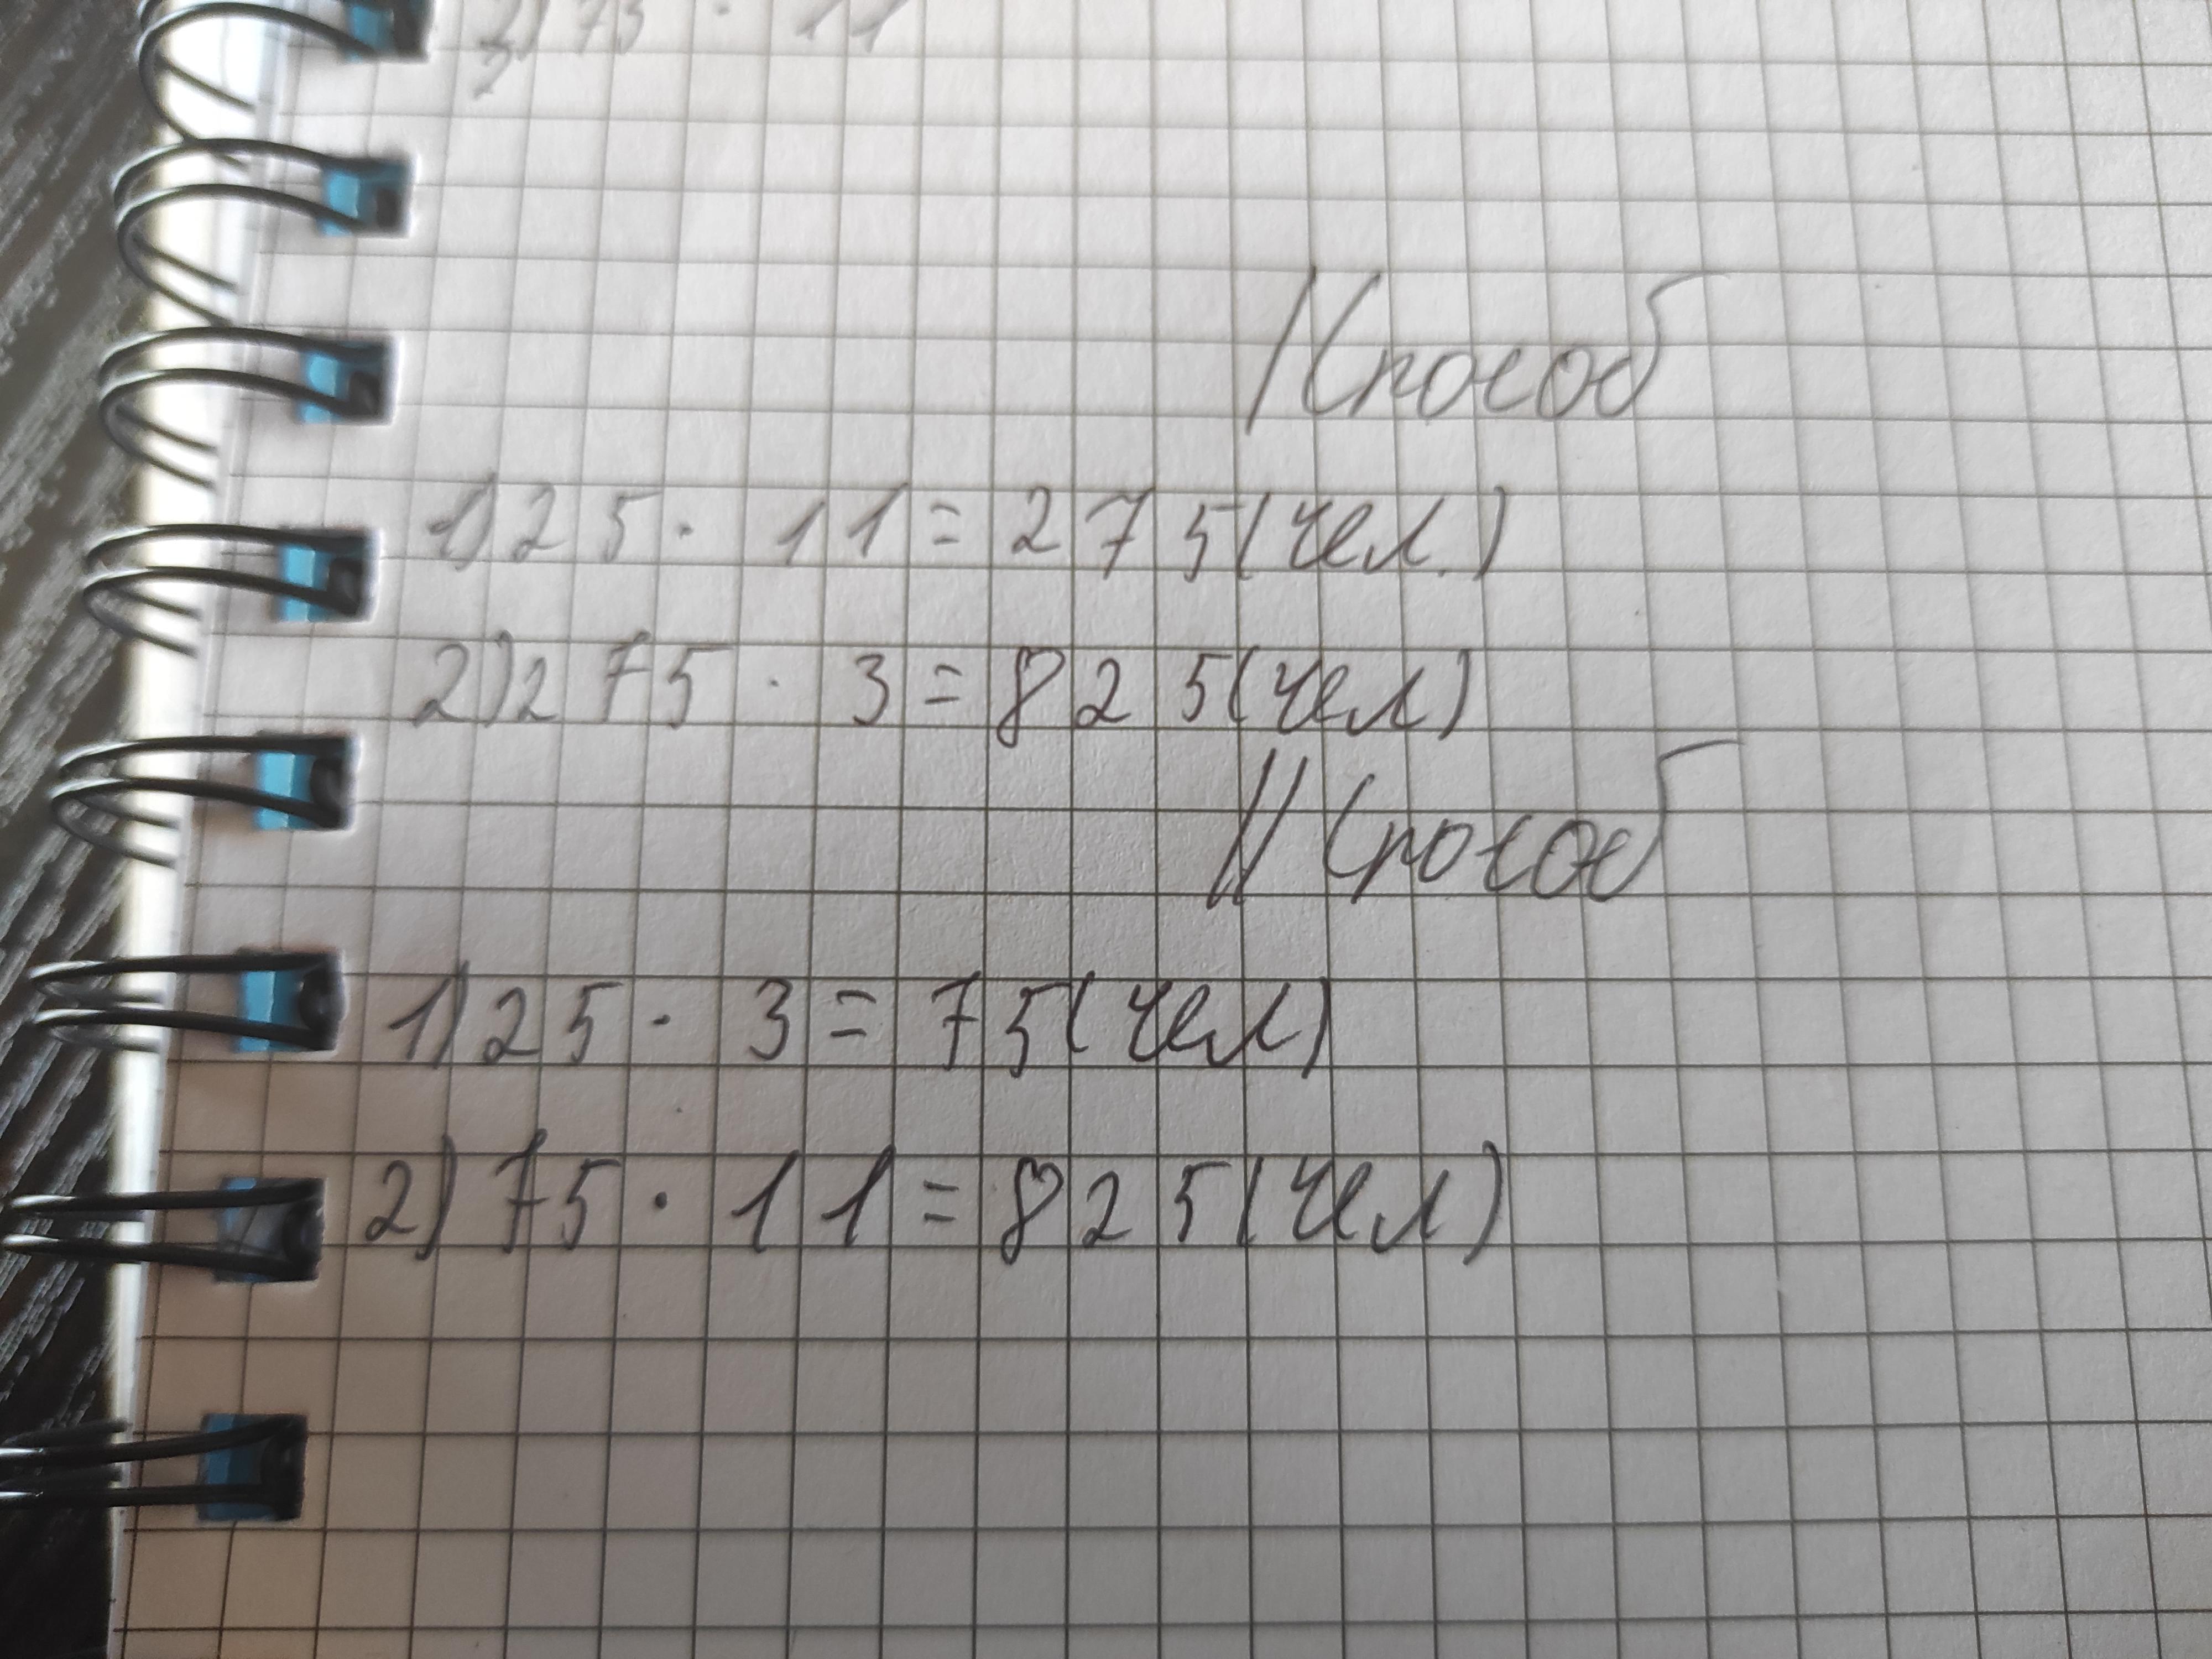 2) 75 · 11
I Способ
1) 25 · 11 = 275 (чел.)
2) 275 · 3 = 825 (чел)
II Способ
1) 25 · 3 = 75 (чел)
2) 75 · 11 = 825 (чел)